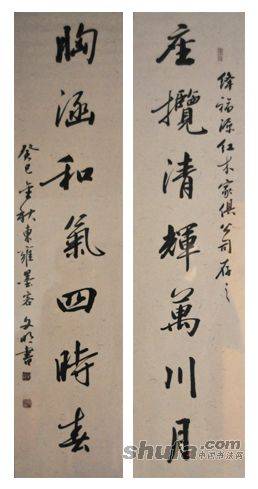 绛福源红木家俱公司存之
座攬清輝萬川月
胸涵和氣四時春
癸巳金秋東雍墨客文明書
shufa.com
中国书法网